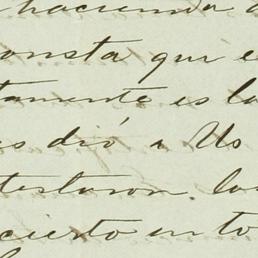 hacienda
onsta que e
tamente es la
s dió a Us
testaron la
cierto en to